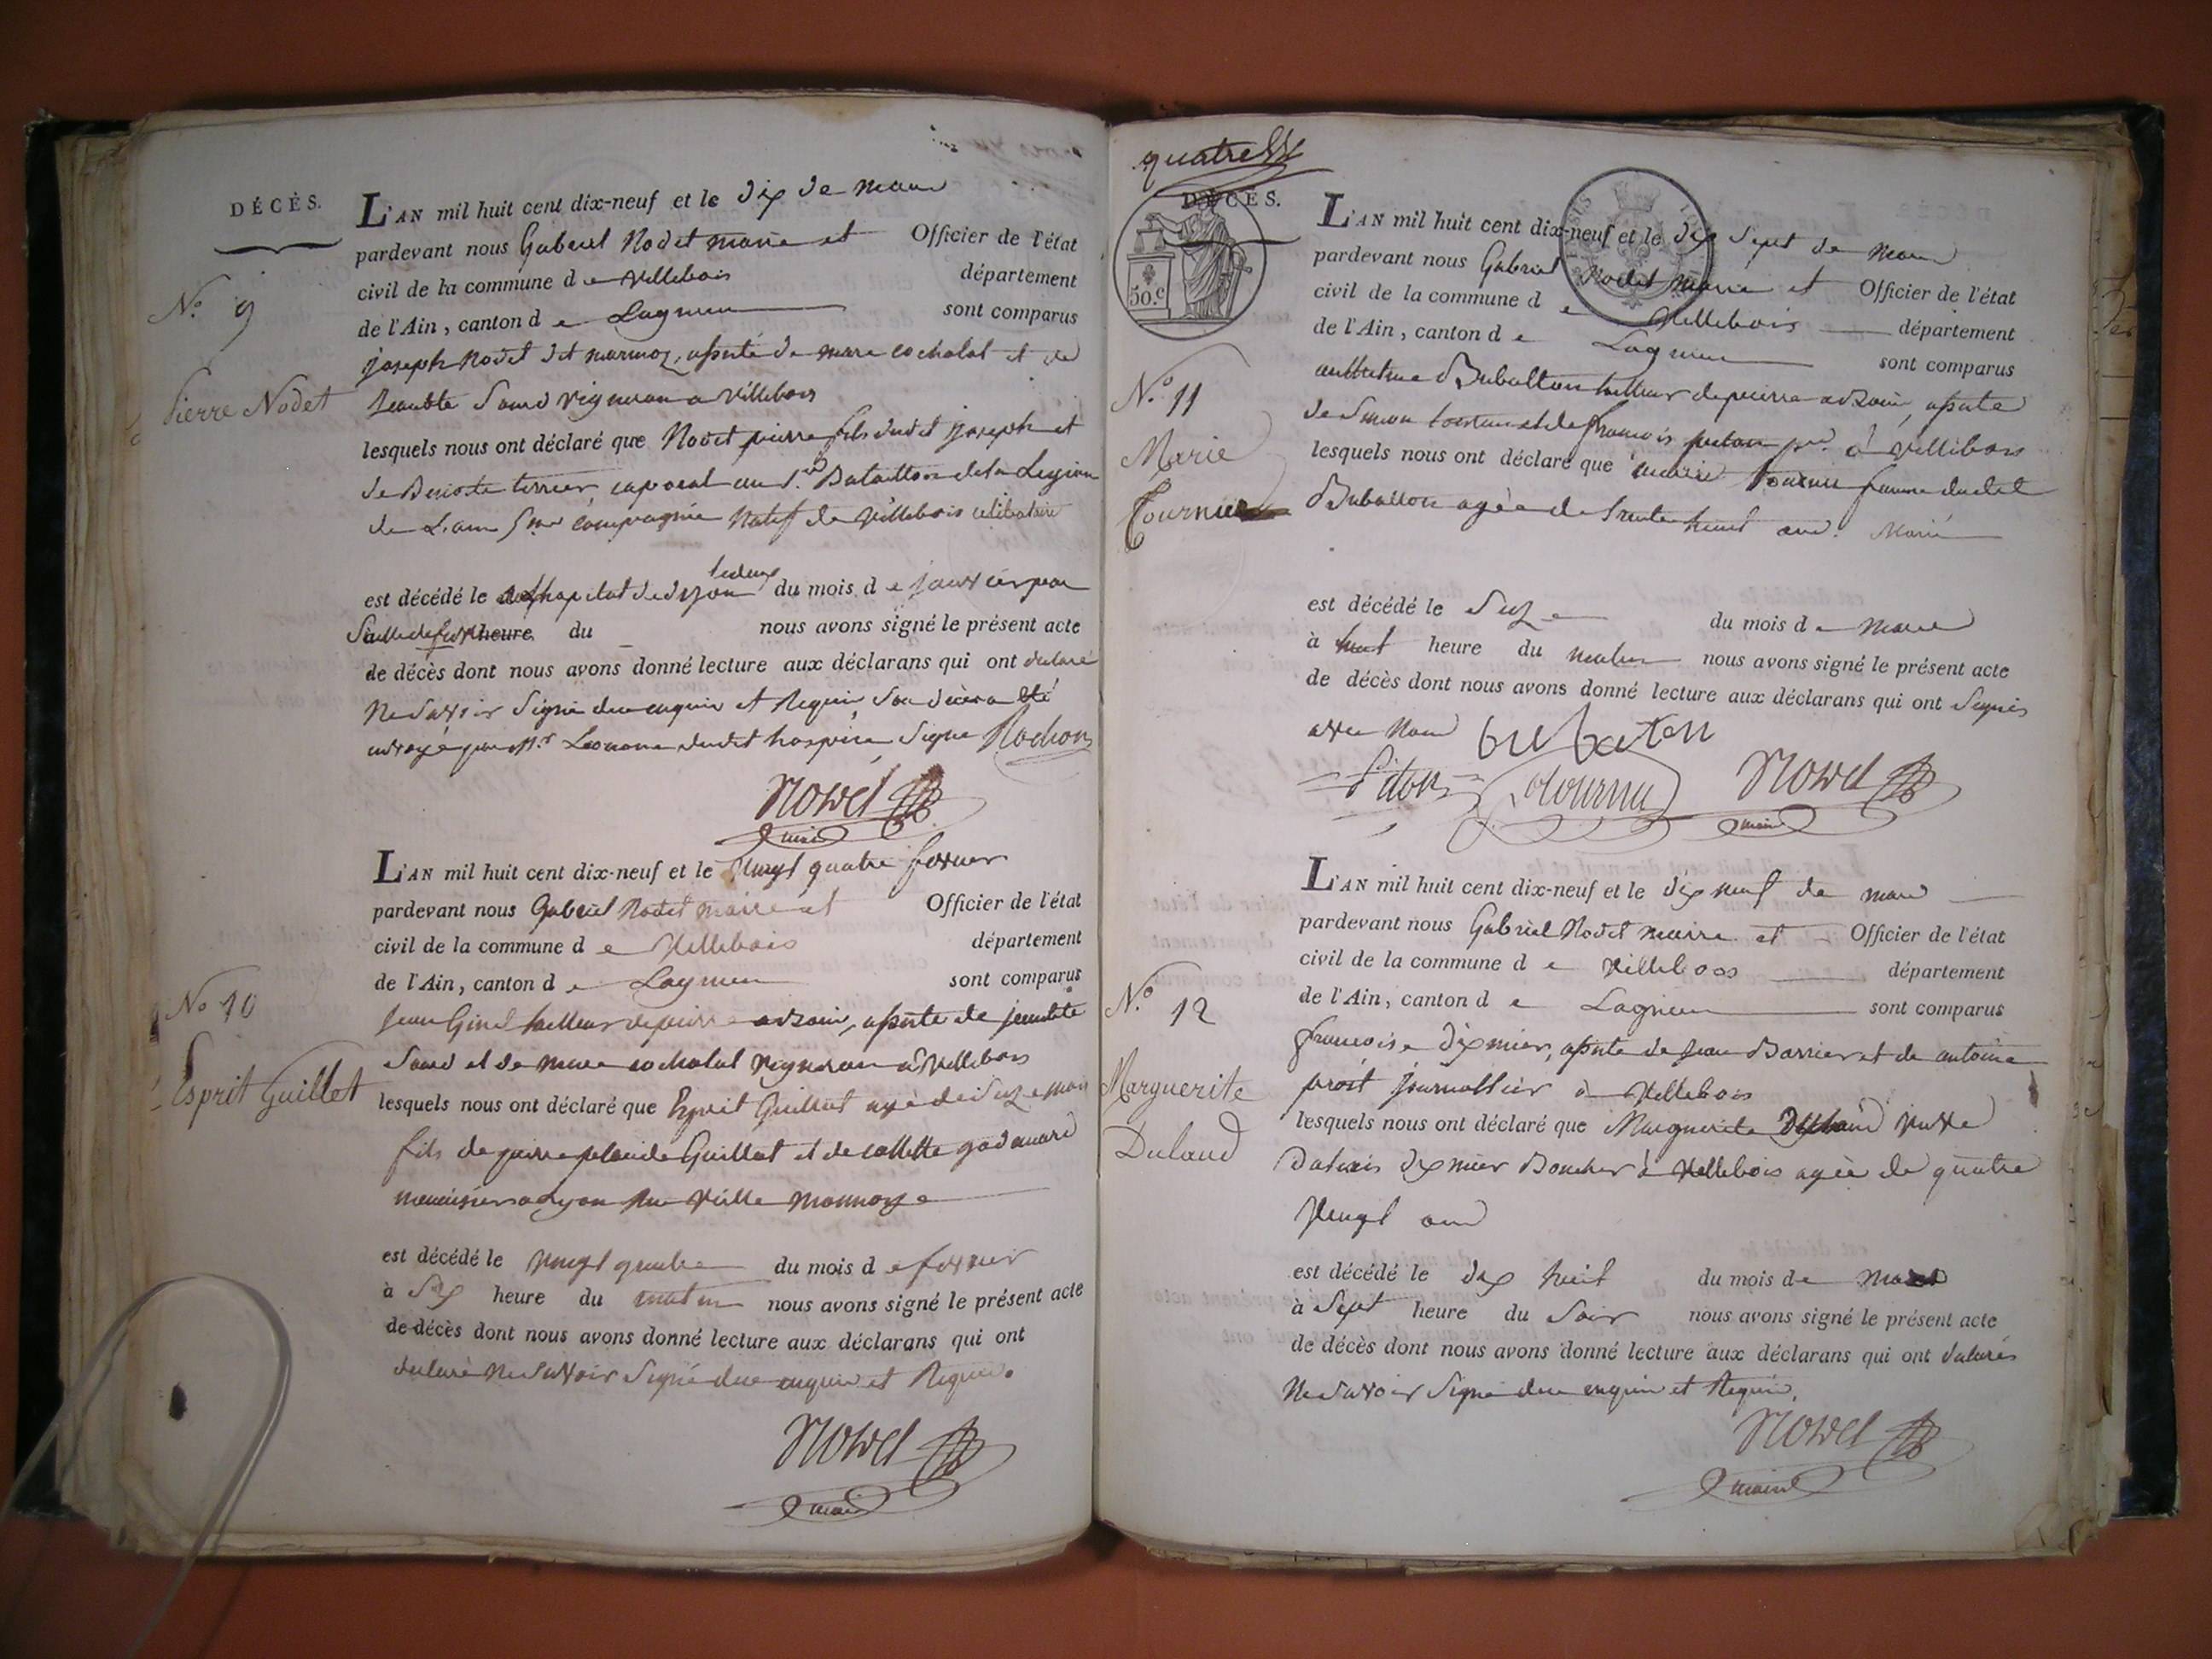 DÉCÈS.
L'AN mil huit cent dix-neuf et le dix de mars
pardevant nous Gabriel Nodet maire et Officier de l'état
civil de la commune d e Villebois département
de l'Ain, canton d e Lagnieu sont comparus
N.o 9
joseph Nodet dit marmoz, assisté de marc cochalat et de
Pierre Nodet
vigneron a villebois
lesquels nous ont déclaré que Nodet pierre fils dudit joseph et
de Benoite terrier, caporal au 1.er Bataillon de la Legion
de L'ain 5me compagnie Natif de Villebois celibataire
est décédé le a l'hopital de dijon le deux du mois d e janvier par
heure du nous avons signé le présent acte
de décès dont nous avons donné lecture aux déclarans qui ont declaré
Ne savoir signé de ce enquis et Requis
envoyé par Mr. dudit hospice signé Rochon
Nodet
maire
L'AN mil huit cent dix-neuf et le vingt quatre fevrier
pardevant nous Gabriel Nodet maire et Officier de l'état
civil de la commune d e Villebois département
de l'Ain, canton d e Lagnieu sont comparus
No 10
jean tailleur de pierre assisté de
Esprit Guillet
et de marc cochalat vigneron a Villebois
lesquels nous ont déclaré que Esprit Guillet agé de seize mois
fils de pierre Guillet et de collette
menuisier a Lyon Rue Vielle Monnoye
est décédé le vingt quatre du mois d e fevrier
à six heure du matin nous avons signé le présent acte
de décès dont nous avons donné lecture aux déclarans qui ont
declaré Ne savoir signé de ce enquis et Requis.
Nodet
maire
quatre
DÉCÈS.
50.c
L'AN mil huit cent dix-neuf et le dix sept de mars
pardevant nous Gabriel Nodet maire et Officier de l'état
civil de la commune d e Villebois département
de l'Ain, canton d e Lagnieu sont comparus
N.o 11
tailleur de pierre assisté
Marie
Tournier
de et de françois a villebois
lesquels nous ont déclaré que marie femme dudit
agée de trente neuf ans. Marié
est décédé le seize du mois d e mars
à huit heure du matin nous avons signé le présent acte
de décès dont nous avons donné lecture aux déclarans qui ont signés
avec Nous
Nodet
maire
L'AN mil huit cent dix-neuf et le dix neuf de mars
pardevant nous Gabriel Nodet maire et Officier de l'état
civil de la commune d e Villebois département
de l'Ain, canton d e Lagnieu sont comparus
N.o 12
françois Dixmier, assisté de jean Barrier et de antoine
Marguerite
Dulaud
journallier a Villebois
lesquels nous ont déclaré que Marguerite veuve
Dixmier Boucher à Villebois agée de quatre
vingt ans
est décédé le dix huit du mois d e mars
à sept heure du soir nous avons signé le présent acte
de décès dont nous avons donné lecture aux déclarans qui ont declarés
Ne savoir signé de ce enquis et Requis.
Nodet
maire